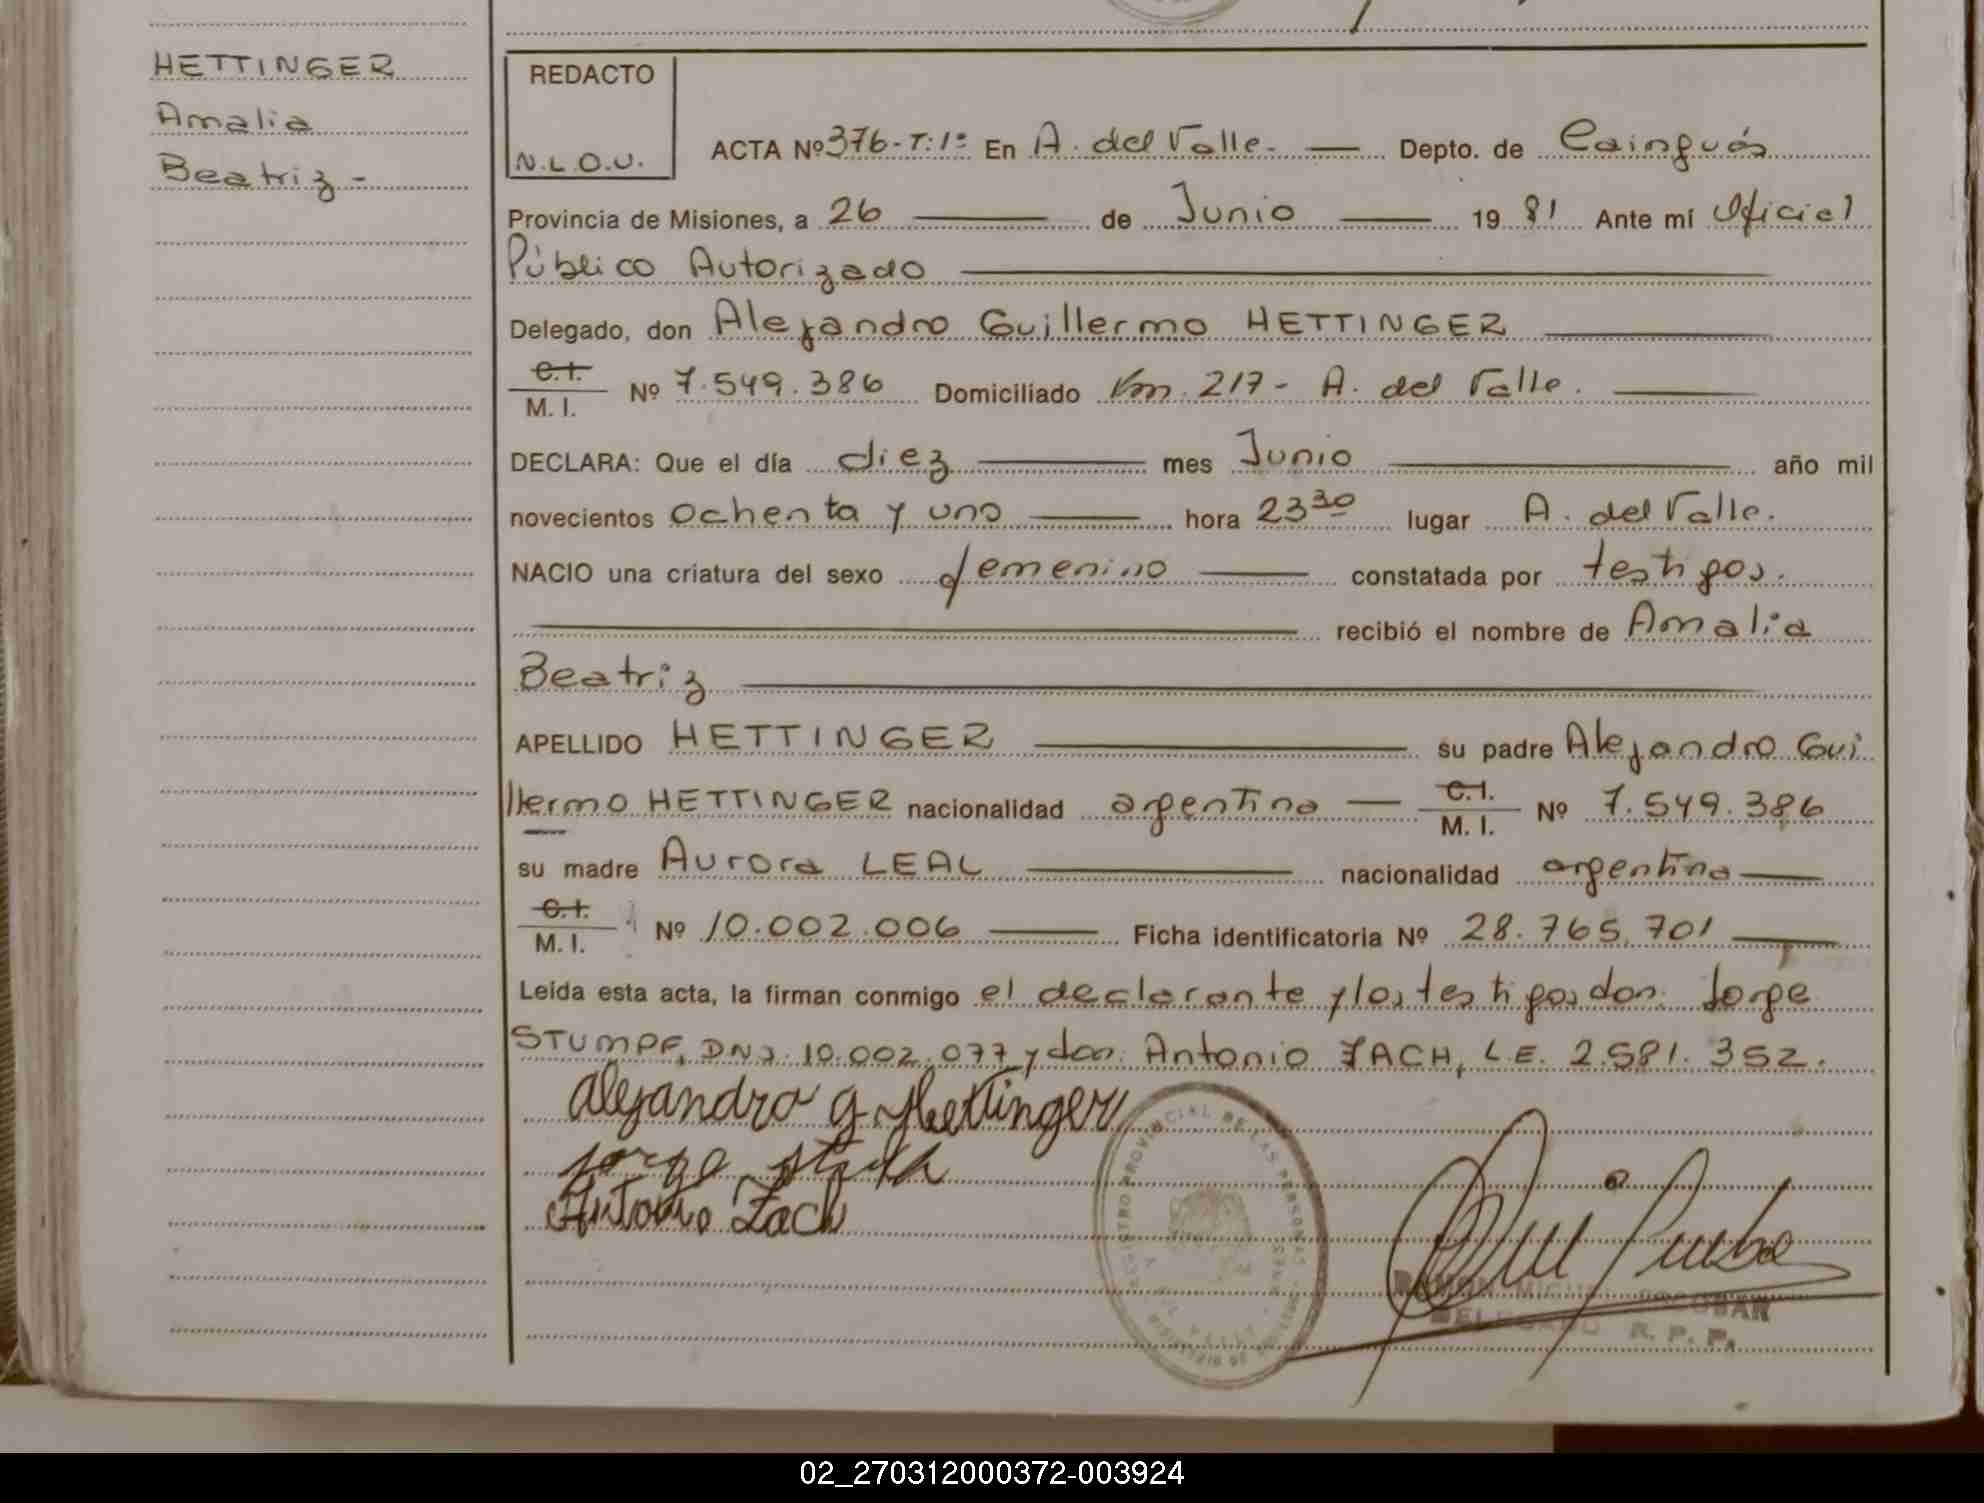 HETTINGER
Amalia
Beatriz -
REDACTO
N.L.O.U.
ACTA Nº 376-T:1º En A. del Valle. — Depto. de Cainguás
Provincia de Misiones, a 26 — de Junio — 19 81 Ante mí Oficial
Público Autorizado —
Delegado, don Alejandro Guillermo HETTINGER —
C.I.
M. I. Nº 7.549.386 Domiciliado Km. 217- A. del Valle. —
DECLARA: Que el día diez — mes Junio — año mil
novecientos ochenta y uno — hora 23 30 lugar A. del Valle.
NACIO una criatura del sexo femenino — constatada por testigos.
— recibió el nombre de Amalia
Beatriz —
APELLIDO HETTINGER — su padre Alejandro Gui
llermo HETTINGER nacionalidad argentina — C.I. M. I. Nº 7.549.386
su madre Aurora LEAL — nacionalidad argentina —
C.I.
M. I. Nº 10.002.006 — Ficha identificatoria Nº 28.765.701 —
Leída esta acta, la firman conmigo el declarante y los testigos don: Jorge
STUMPF, DNI. 10.002.077 y don: Antonio ZACH, L.E. 2.581.352.
Alejandro G. Hettinger
Jorge
Antonio Zach
REGISTRO PROVINCIAL DE LAS PERSONAS
RAMON MIGUEL ESCOBAR
DELEGADO R. P. P.
02_270312000372-003924